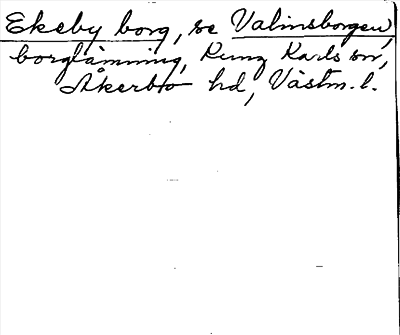 Ekeby borg, se Valinsborgen,
borglämning, Kung Karls sn,
Åkerbo hd, Västm. l.